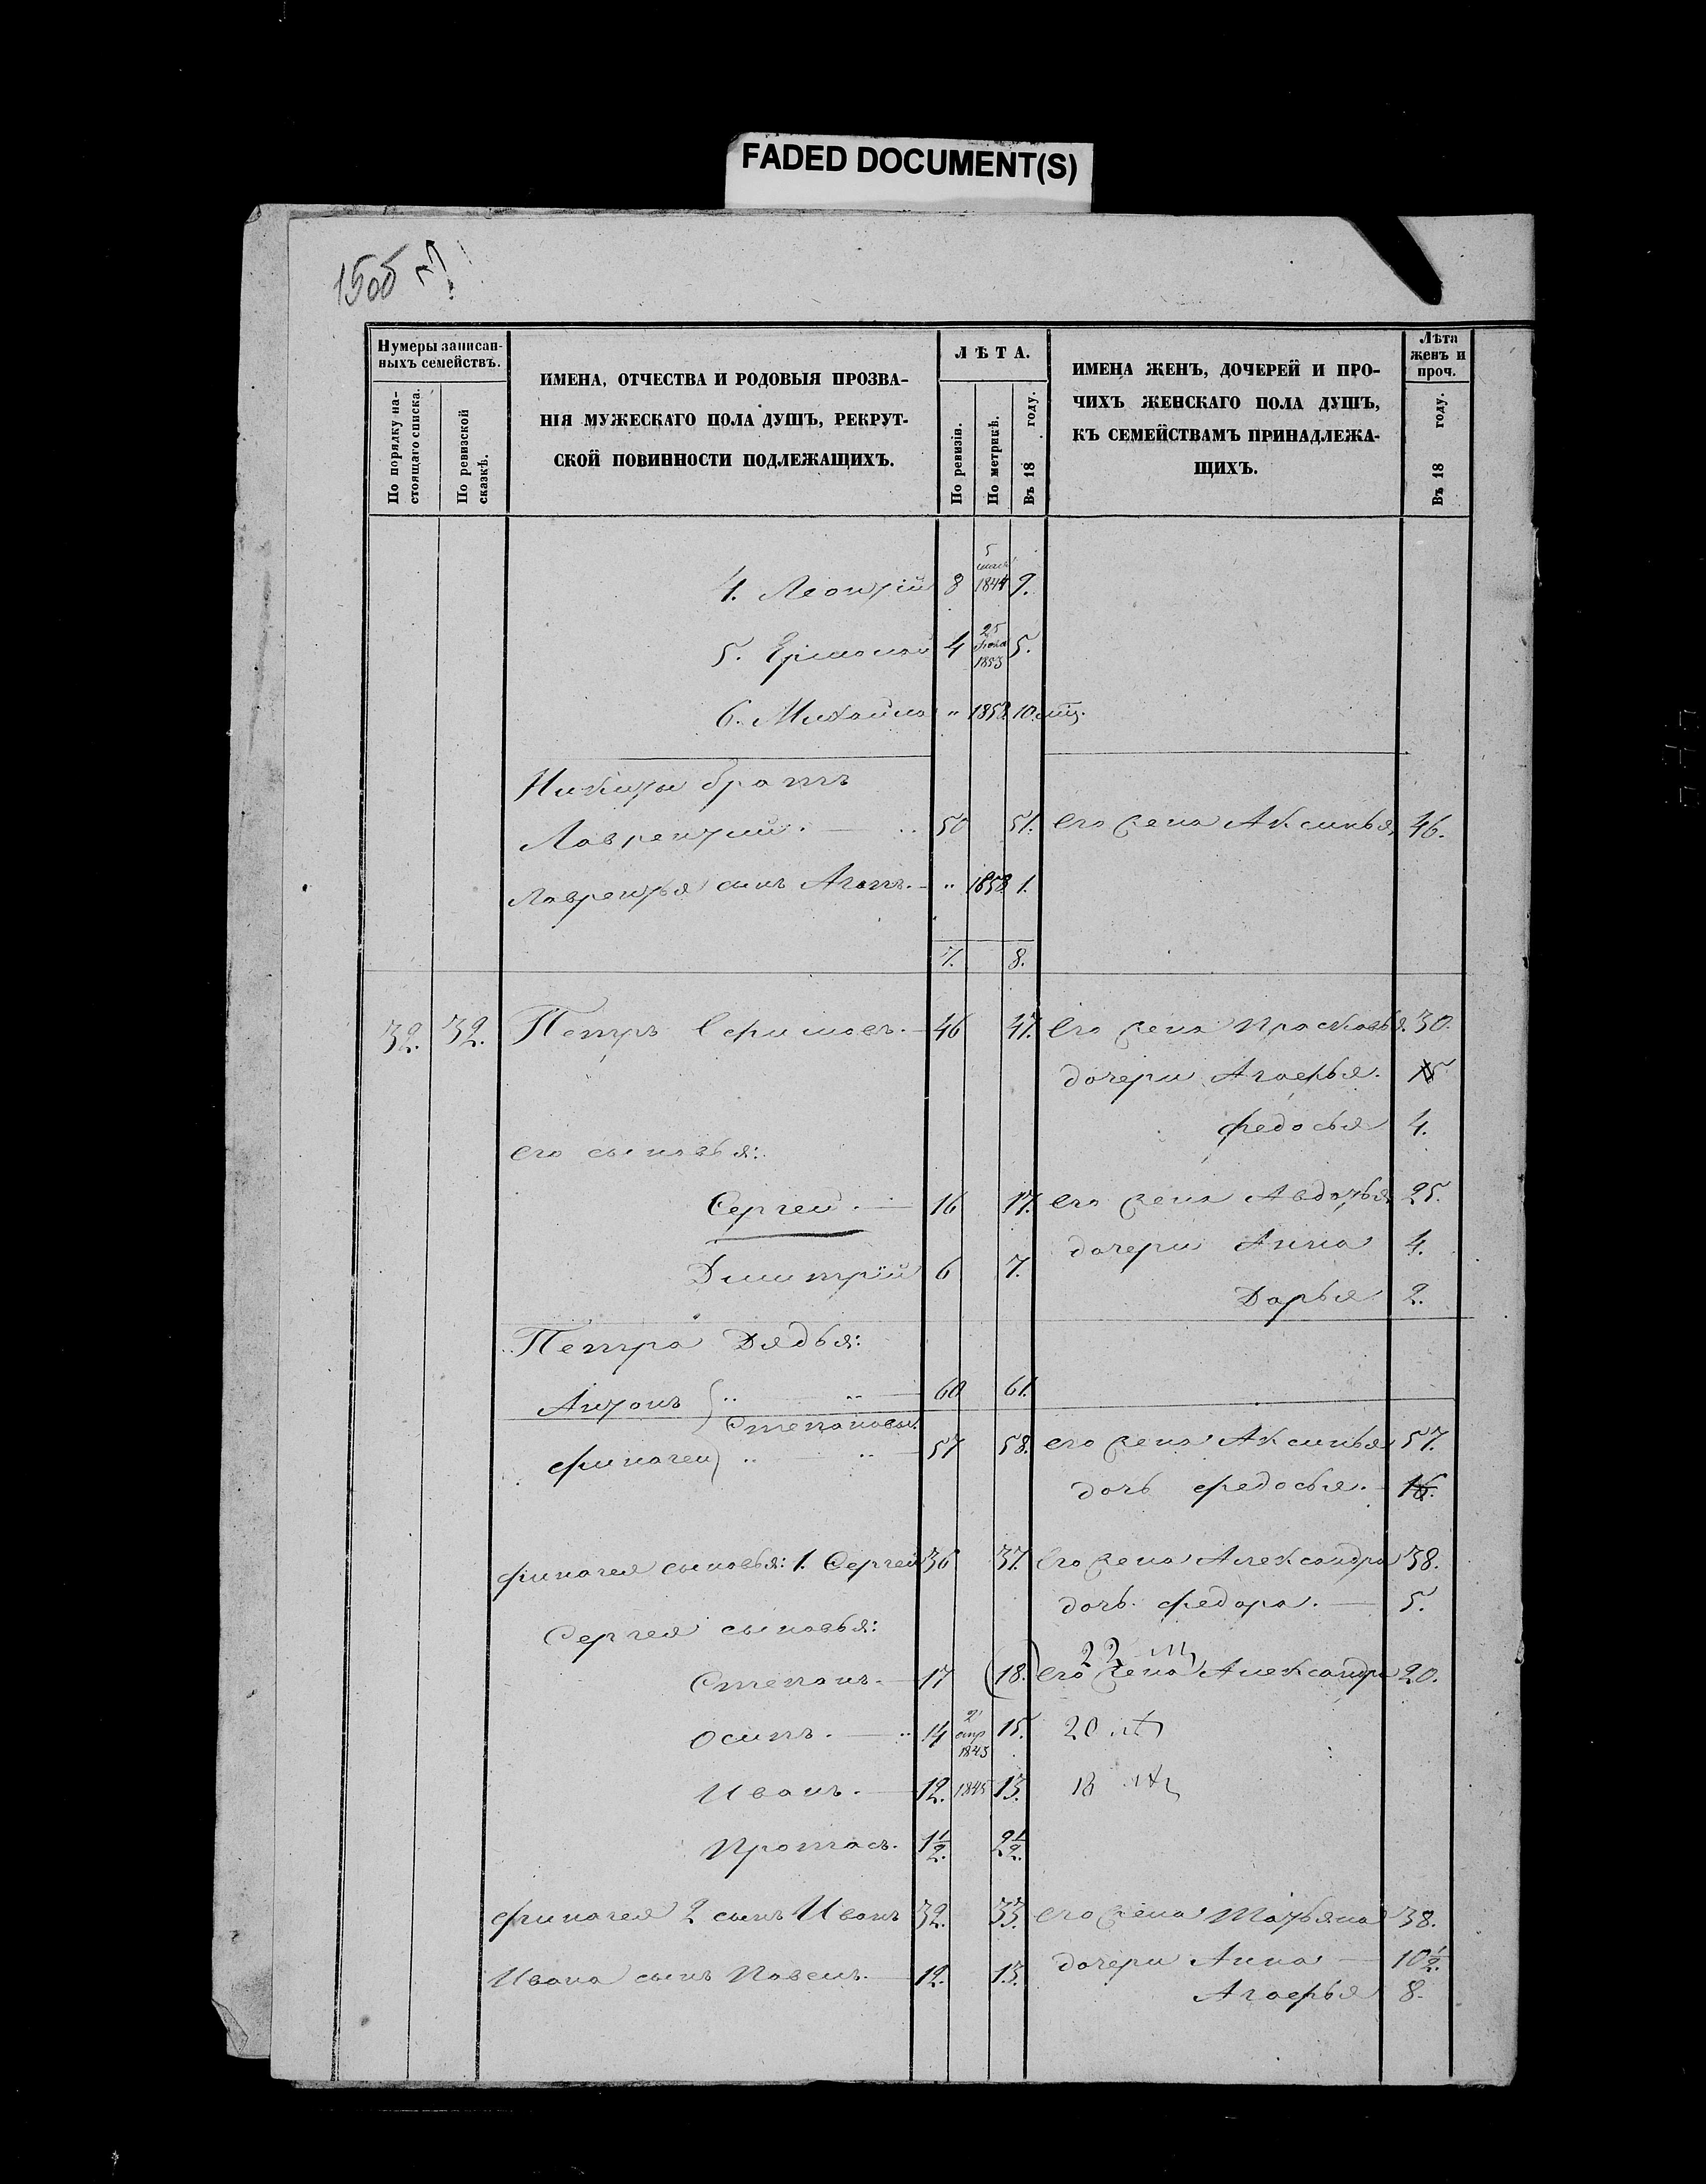 FADED DOCUMENT(S)
Нумеры записан-
ныхъ семействъ.
По порядку на-
стоящаго списка.
По ревизской
сказкѣ.
ИМЕНА, ОТЧЕСТВА И РОДОВЫЯ ПРОЗВА-
НІЯ МУЖЕСКАГО ПОЛА ДУШЪ, РЕКРУТ-
СКОЙ ПОВИННОСТИ ПОДЛЕЖАЩИХЪ.
ЛѢТА.
По ревизіи.
По метрикѣ.
Въ 18 году.
ИМЕНА ЖЕНЪ, ДОЧЕРЕЙ И ПРО-
ЧИХЪ ЖЕНСКАГО ПОЛА ДУШЪ,
КЪ СЕМЕЙСТВАМЪ ПРИНАДЛЕЖА-
ЩИХЪ.
Лѣта
женъ и
проч.
Въ 18 году.
4. Леонтій 8 5 1844 9.
5. Ермолай 4 25 1853 5.
6. Михайла " 1858 10. мц.
Никиты братъ
Лаврентий. 50 51. его жена Аксинья 46.
Лаврентья сынъ Агапъ. " 1858 1.
7. 8.
32. 32. Петръ Ефимовъ. 46 47. Его жена Прасковья. 30.
дочери Агафья. 15
Федосья 4.
его сыновья:
Сергей. 16 17. его жена Авдотья 25.
дочери Анна 4.
Дмитрій 6 7.
Дарья 2.
Петра Дядья:
Антонъ " " 60 61.
Степановы.
Финогей " " 57 58. его жена Аксинья 57.
дочь Федосья. 16.
Финогея сыновья: 1. Сергей 36 37. Его жена Александра 38.
дочь Федора. 5.
Сергея сыновья:
22
Степанъ. 17 (18.) его жена Александра 20.
Осипъ. 14 2 апр 1843 15. 20
Иванъ. 12. 1845 13. 18
Протасъ. 1½ 2½.
Финогея 2 сынъ Иванъ 32. 33. его жена Татьяна 38.
дочери Анна 10½.
Ивана сынъ Павелъ. 12. 13.
Агафья 8.